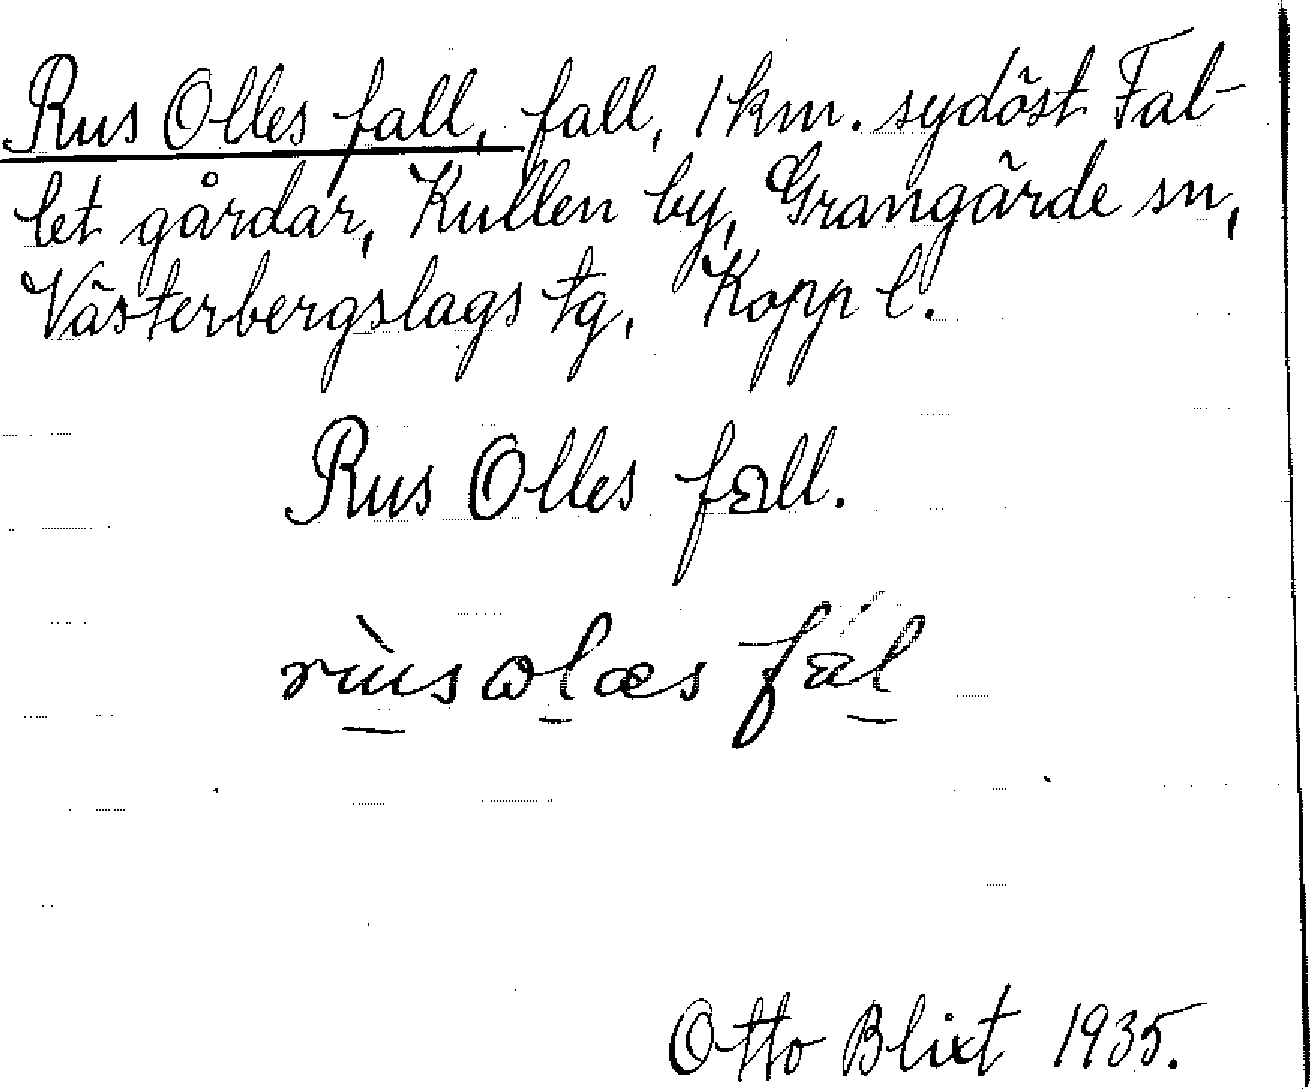 Rus Olles fall, fall, 1 km. sydöst Fal-
let gårdar, Kullen by, Grangärde sn,
Västerbergslags tg, Kopp l.
Rus Olles fall.
Otto Blixt 1935.